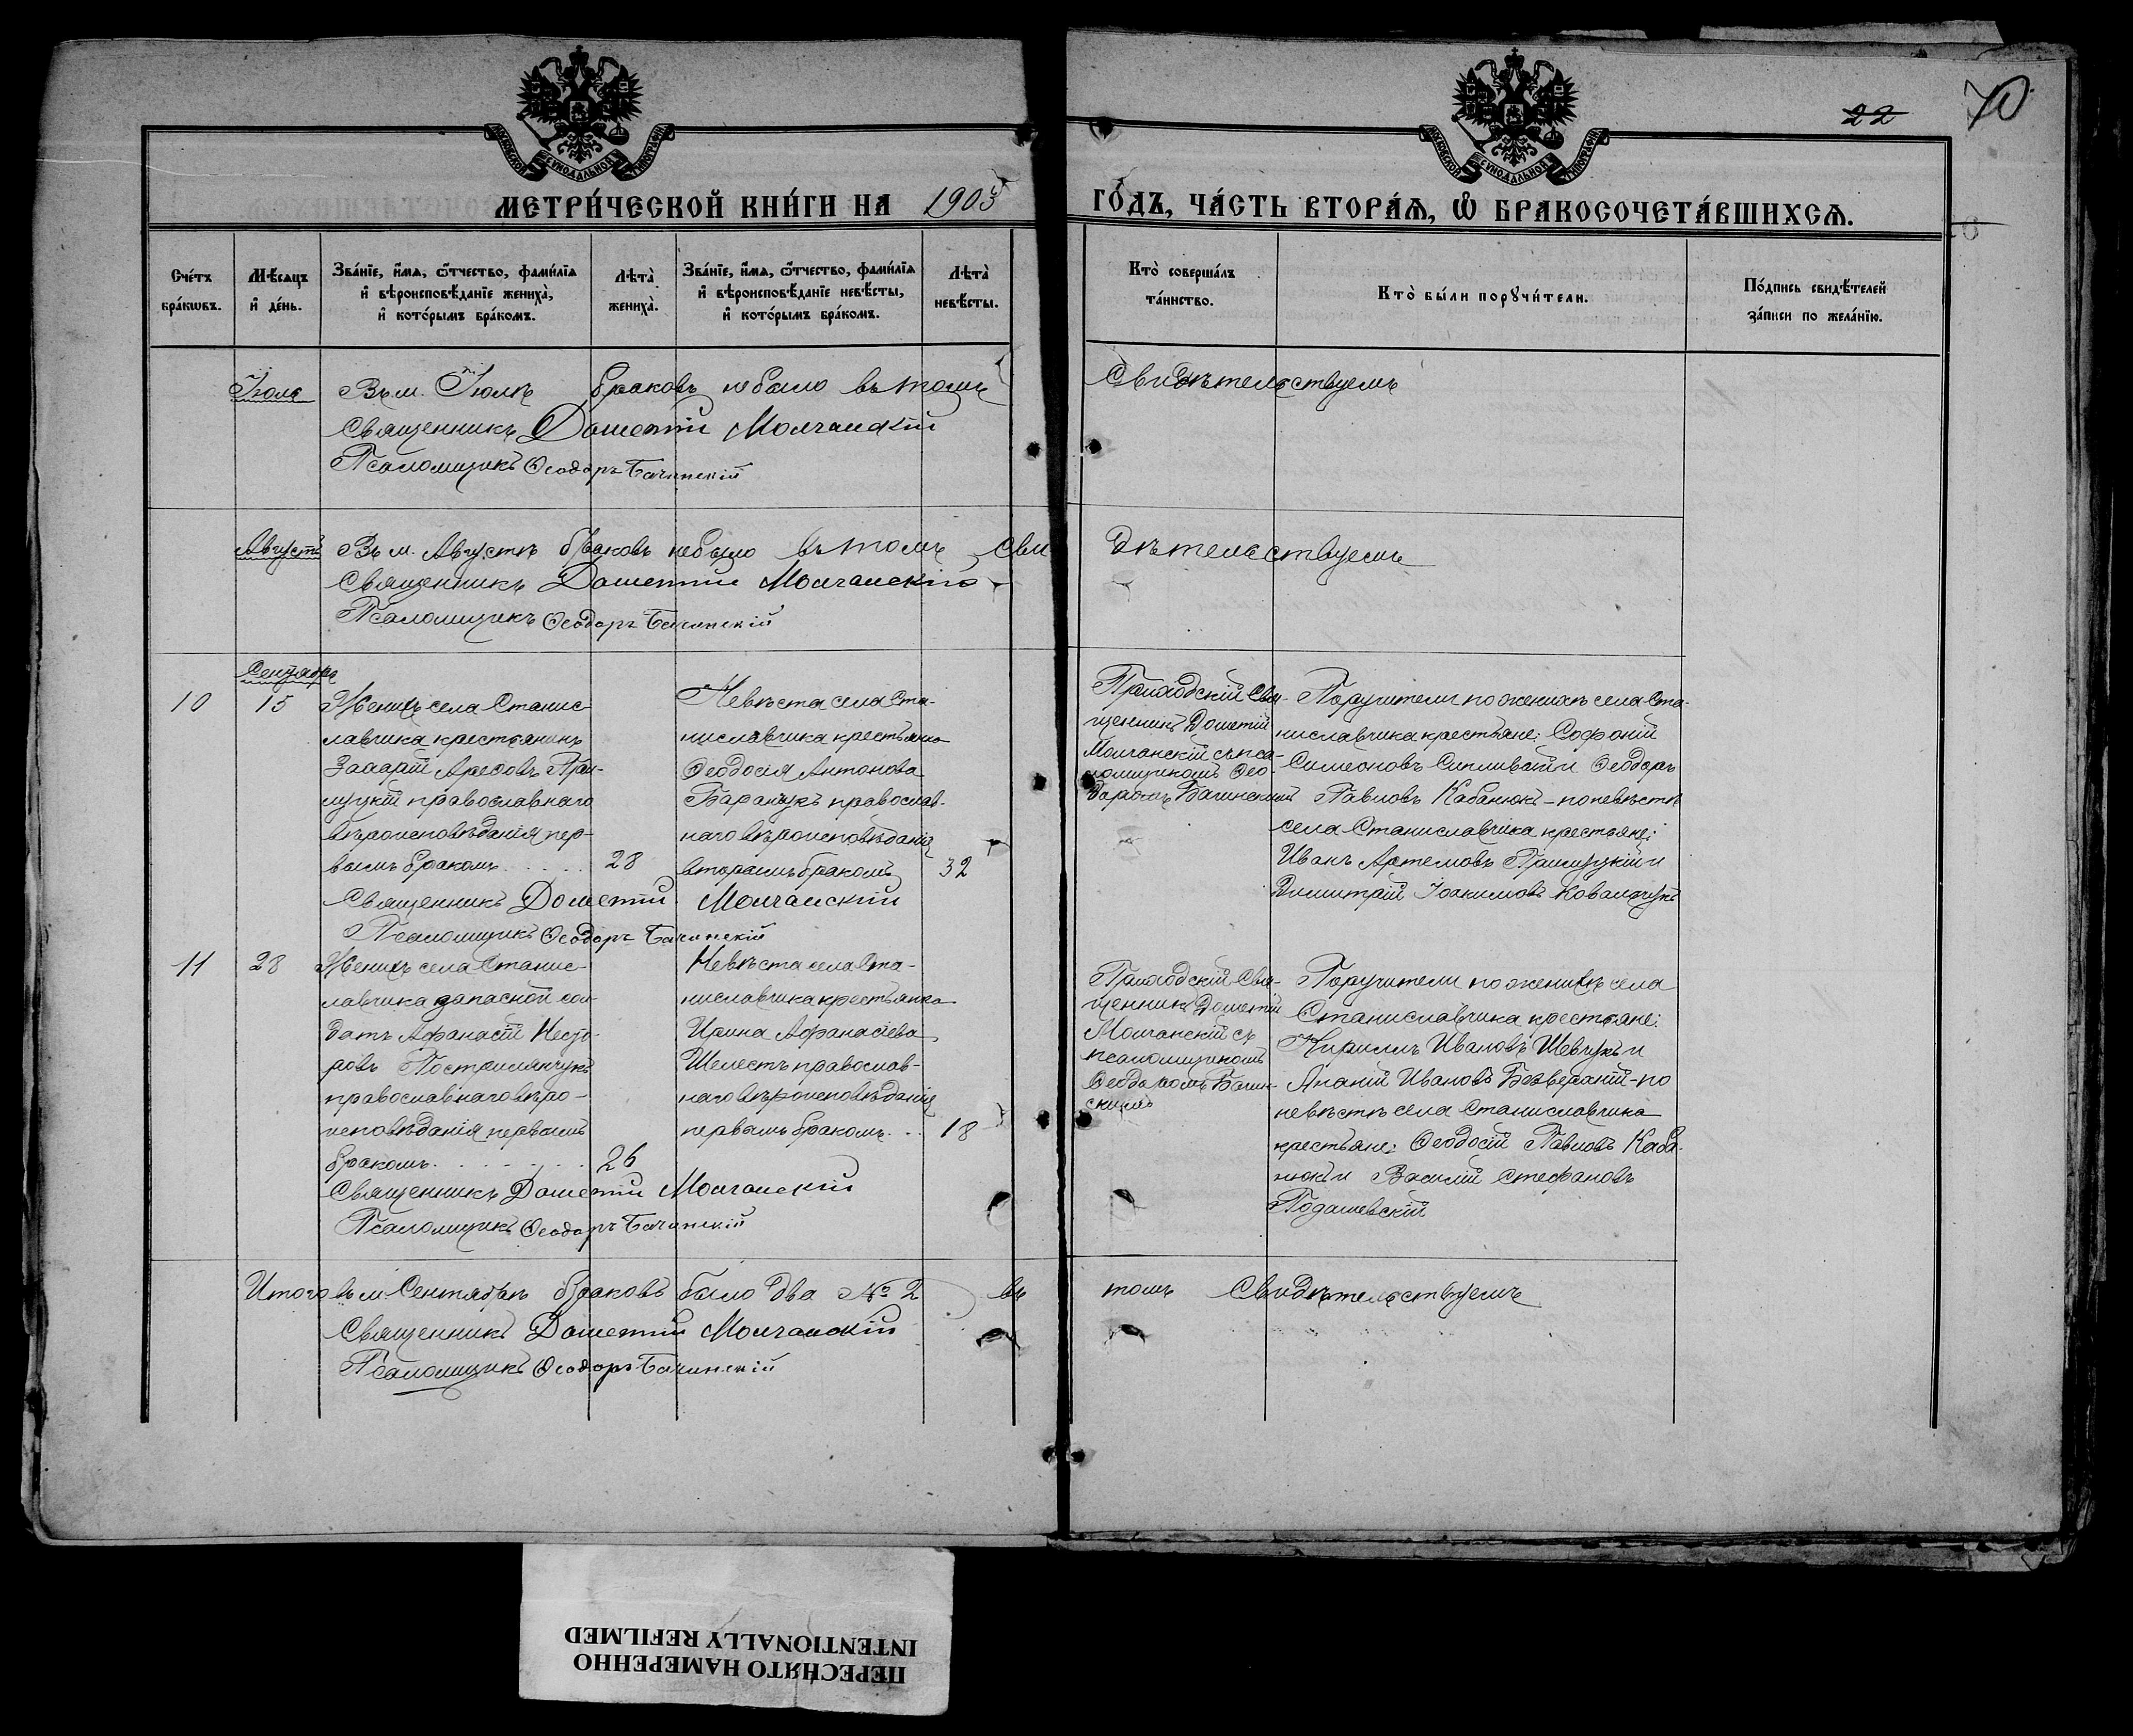 22 70
МОСКОВСКОЙ СѴНОДАЛЬНОЙ ТИПОГРАФІИ
МОСКОВСКОЙ СѴНОДАЛЬНОЙ ТИПОГРАФІИ
МЕТРИ́ЧЕСКОЙ КНИ́ГИ НА 1903
ГО́ДЪ, ЧА́СТЬ ВТОРА́Ѧ, Ѽ БРАКОСОЧЕТА́ВШИХСѦ.
Сче́тъ
бра́кѡвъ.
Мѣ́сяцъ
и҆ де́нь.
Зва́нїе, и҆́мѧ, ѻ҆́тчество, фами́лїѧ
и҆ вѣроисповѣ́данїе жениха̀,
и҆ кото́рымъ бра́комъ.
Лѣта̀
жениха̀.
Зва́нїе, и҆́мѧ, ѻ҆́тчество, фами́лїѧ
и҆ вѣроисповѣ́данїе невѣ́сты,
и҆ кото́рымъ бра́комъ.
Лѣта̀
невѣ́сты.
Кто̀ соверша́лъ
та́инство.
Кто̀ бы́ли порꙋчи́тели.
По́дпись свидѣ́телей
за́писи по жела́нїю.
Іюль Въ м. Іюлѣ браковъ небыло въ томъ Свидѣтельствуемъ
Священникъ Дометій Молчанскій
Псаломщикъ Ѳеодоръ Бачинскій
Августъ Въ м. Августѣ браковъ небыло въ томъ Сви дѣтельствуемъ
Священникъ Дометій Молчанскій
Псаломщикъ Ѳеодоръ Бачинскій
Сентябрь
10 15 Женихъ села Станис-
лавчика крестьянинъ
Захарій Ареѳовъ При-
луцкій православнаго
вѣроисповѣданія пер-
вымъ бракомъ . . . . . 28
Невѣста села Ста-
ниславчика крестьянка
Ѳеодосія Антонова
Баранукъ православ-
наго вѣроисповѣданія
вторымъ бракомъ 32
Приходскій Свя-
щенникъ Дометій
Молчанскій съ пса-
ломщикомъ Ѳео-
доромъ Бачинскимъ
Поручители по женихѣ села Ста-
ниславчика крестьяне: Софоній
Симеоновъ Сипливскій и Ѳеодоръ
Павловъ Кабанюкъ - по невѣстѣ
села Станиславчика крестьяне:
Иванъ Артемовъ Прилуцкій и
Димитрій Іоакимовъ Ковальчукъ
Священникъ Дометій Молчанскій
Псаломщикъ Ѳеодоръ Бачинскій
11 28 Женихъ села Станис-
лавчика запасной сол-
датъ Афанасій Несто-
ровъ
православнаго вѣро-
исповѣданія первымъ
бракомъ . . . . . . . 26
Невѣста села Ста-
ниславчика крестьянка
Ирина Афанасіева
Шелестъ православ-
наго вѣроисповѣданія
первымъ бракомъ . . 18
Приходскій Свя-
щенникъ Дометій
Молчанскій съ
псаломщикомъ
Ѳеодоромъ Бачин-
скимъ
Поручители по женихѣ села
Станиславчика крестьяне:
Кириллъ Ивановъ Шевчукъ и
Ананій Ивановъ Безверхній - по
невѣстѣ села Станиславчика
крестьяне: Ѳеодосій Павловъ Каба-
нюкъ и Василій Стефановъ
Подашевскій
Священникъ Дометій Молчанскій
Псаломщикъ Ѳеодоръ Бачинскій
Итого въ м. Сентябрѣ браковъ было два № 2 въ томъ Свидѣтельствуемъ
Священникъ Дометій Молчанскій
Псаломщикъ Ѳеодоръ Бачинскій
ПЕРЕСНЯТО НАМЕРЕННО
INTENTIONALLY REFILMED